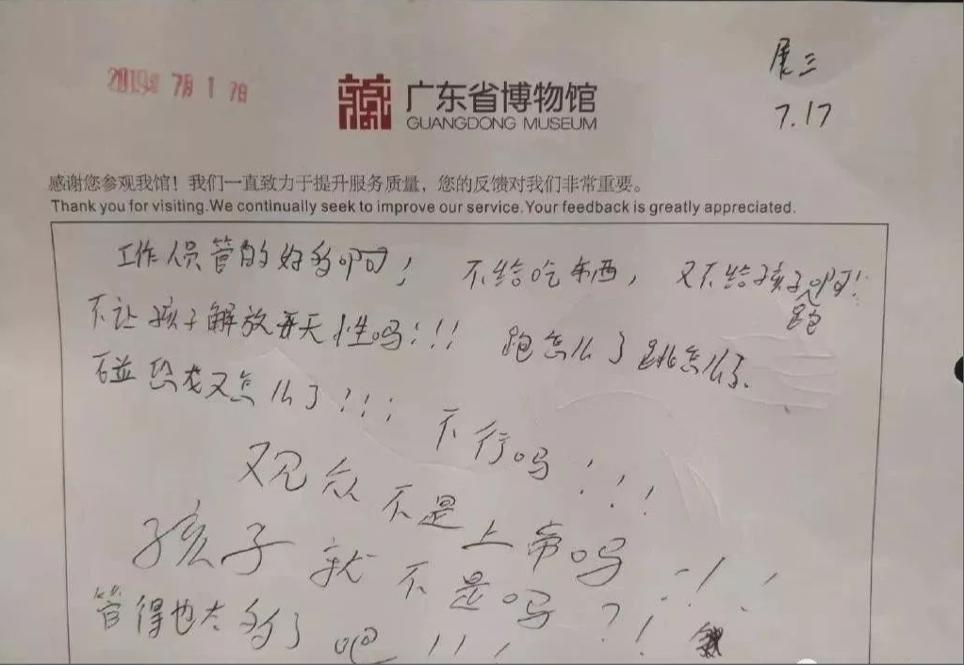 2019年 7月17日
展三
7.17
广东省博物馆
GUANGDONG MUSEUM
感谢您参观我馆！我们一直致力于提升服务质量，您的反馈对我们非常重要。
Thank you for visiting.We continually seek to improve our service.Your feedback is greatly appreciated.
工作人员管的好多啊！ 不给吃东西，又不给孩子跑啊！
不让孩子解放天性吗！！！ 跑怎么了跳怎么了.
碰恐龙又怎么了！！！
不行吗！！！
观众不是上帝吗！！！
孩子就不是吗？！
管得也太多了吧！！！